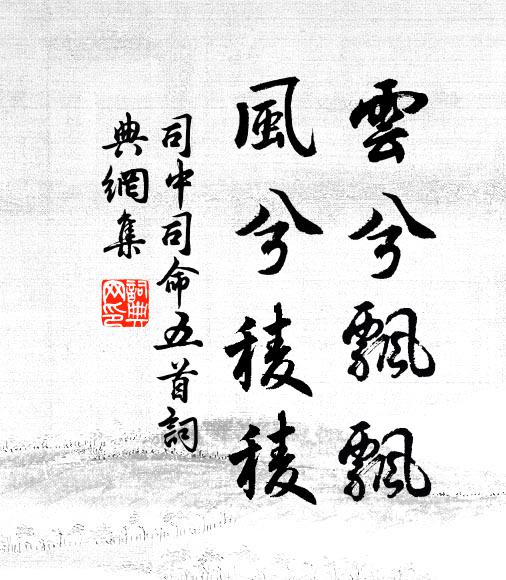 雲兮飄飄
風兮稜稜
司中司命五首詞
典網集
詞典
网印